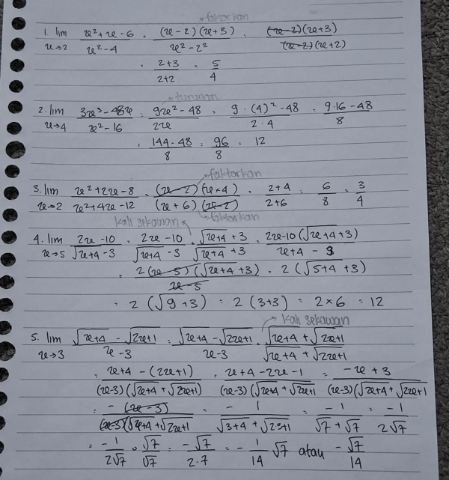 faktorkan
1. lim x→2 x²+x-6 / x²-4 = (x-2)(x+3) / x²-2² = (x-2)(x+3) / (x-2)(x+2)
= 2+3 / 2+2 = 5/4
turunan
2. lim x→4 3x³-48x / x²-16 = 9x²-48 / 2x = 9·(4)²-48 / 2·4 = 9·16-48 / 8
= 144-48 / 8 = 96/8 = 12
faktorkan
3. lim x→2 x²+2x-8 / x²+4x-12 = (x-2)(x+4) / (x+6)(x-2) = 2+4 / 2+6 = 6/8 = 3/4
faktorkan
kali sekawan
4. lim x→5 2x-10 / √x+4 -3 = 2x-10 / √x+4 -3 · √x+4 +3 / √x+4 +3 = 2x-10(√x+4+3) / x+4-9
= 2(x-5)(√x+4 +3) / x-5 = 2(√5+4 +3)
= 2(√9+3) = 2(3+3) = 2×6 = 12
kali sekawan
5. lim x→3 √x+4 - √2x+1 / x-3 = √x+4 - √2x+1 / x-3 · √x+4 + √2x+1 / √x+4 + √2x+1
= x+4-(2x+1) / (x-3)(√x+4+√2x+1) = x+4-2x-1 / (x-3)(√x+4+√2x+1) = -x+3 / (x-3)(√x+4+√2x+1)
= -(x-3) / (x-3)(√x+4+√2x+1) = -1 / √3+4 + √2·3+1 = -1 / √7+√7 = -1 / 2√7
= -1 / 2√7 · √7/√7 = -√7 / 2·7 = -1/14 √7 atau -√7/14